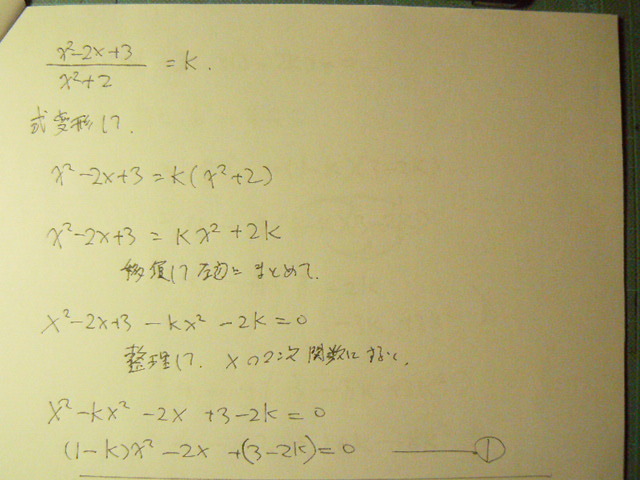 x²-2x+3
───── = k.
x²+2
式変形して.
x²-2x+3=k(x²+2)
x²-2x+3=kx²+2k
移項して 左辺に まとめて.
x²-2x+3-kx²-2k=0
整理して. xの2次関数に すると.
x²-kx²-2x+3-2k=0
(1-k)x²-2x+(3-2k)=0 ──①